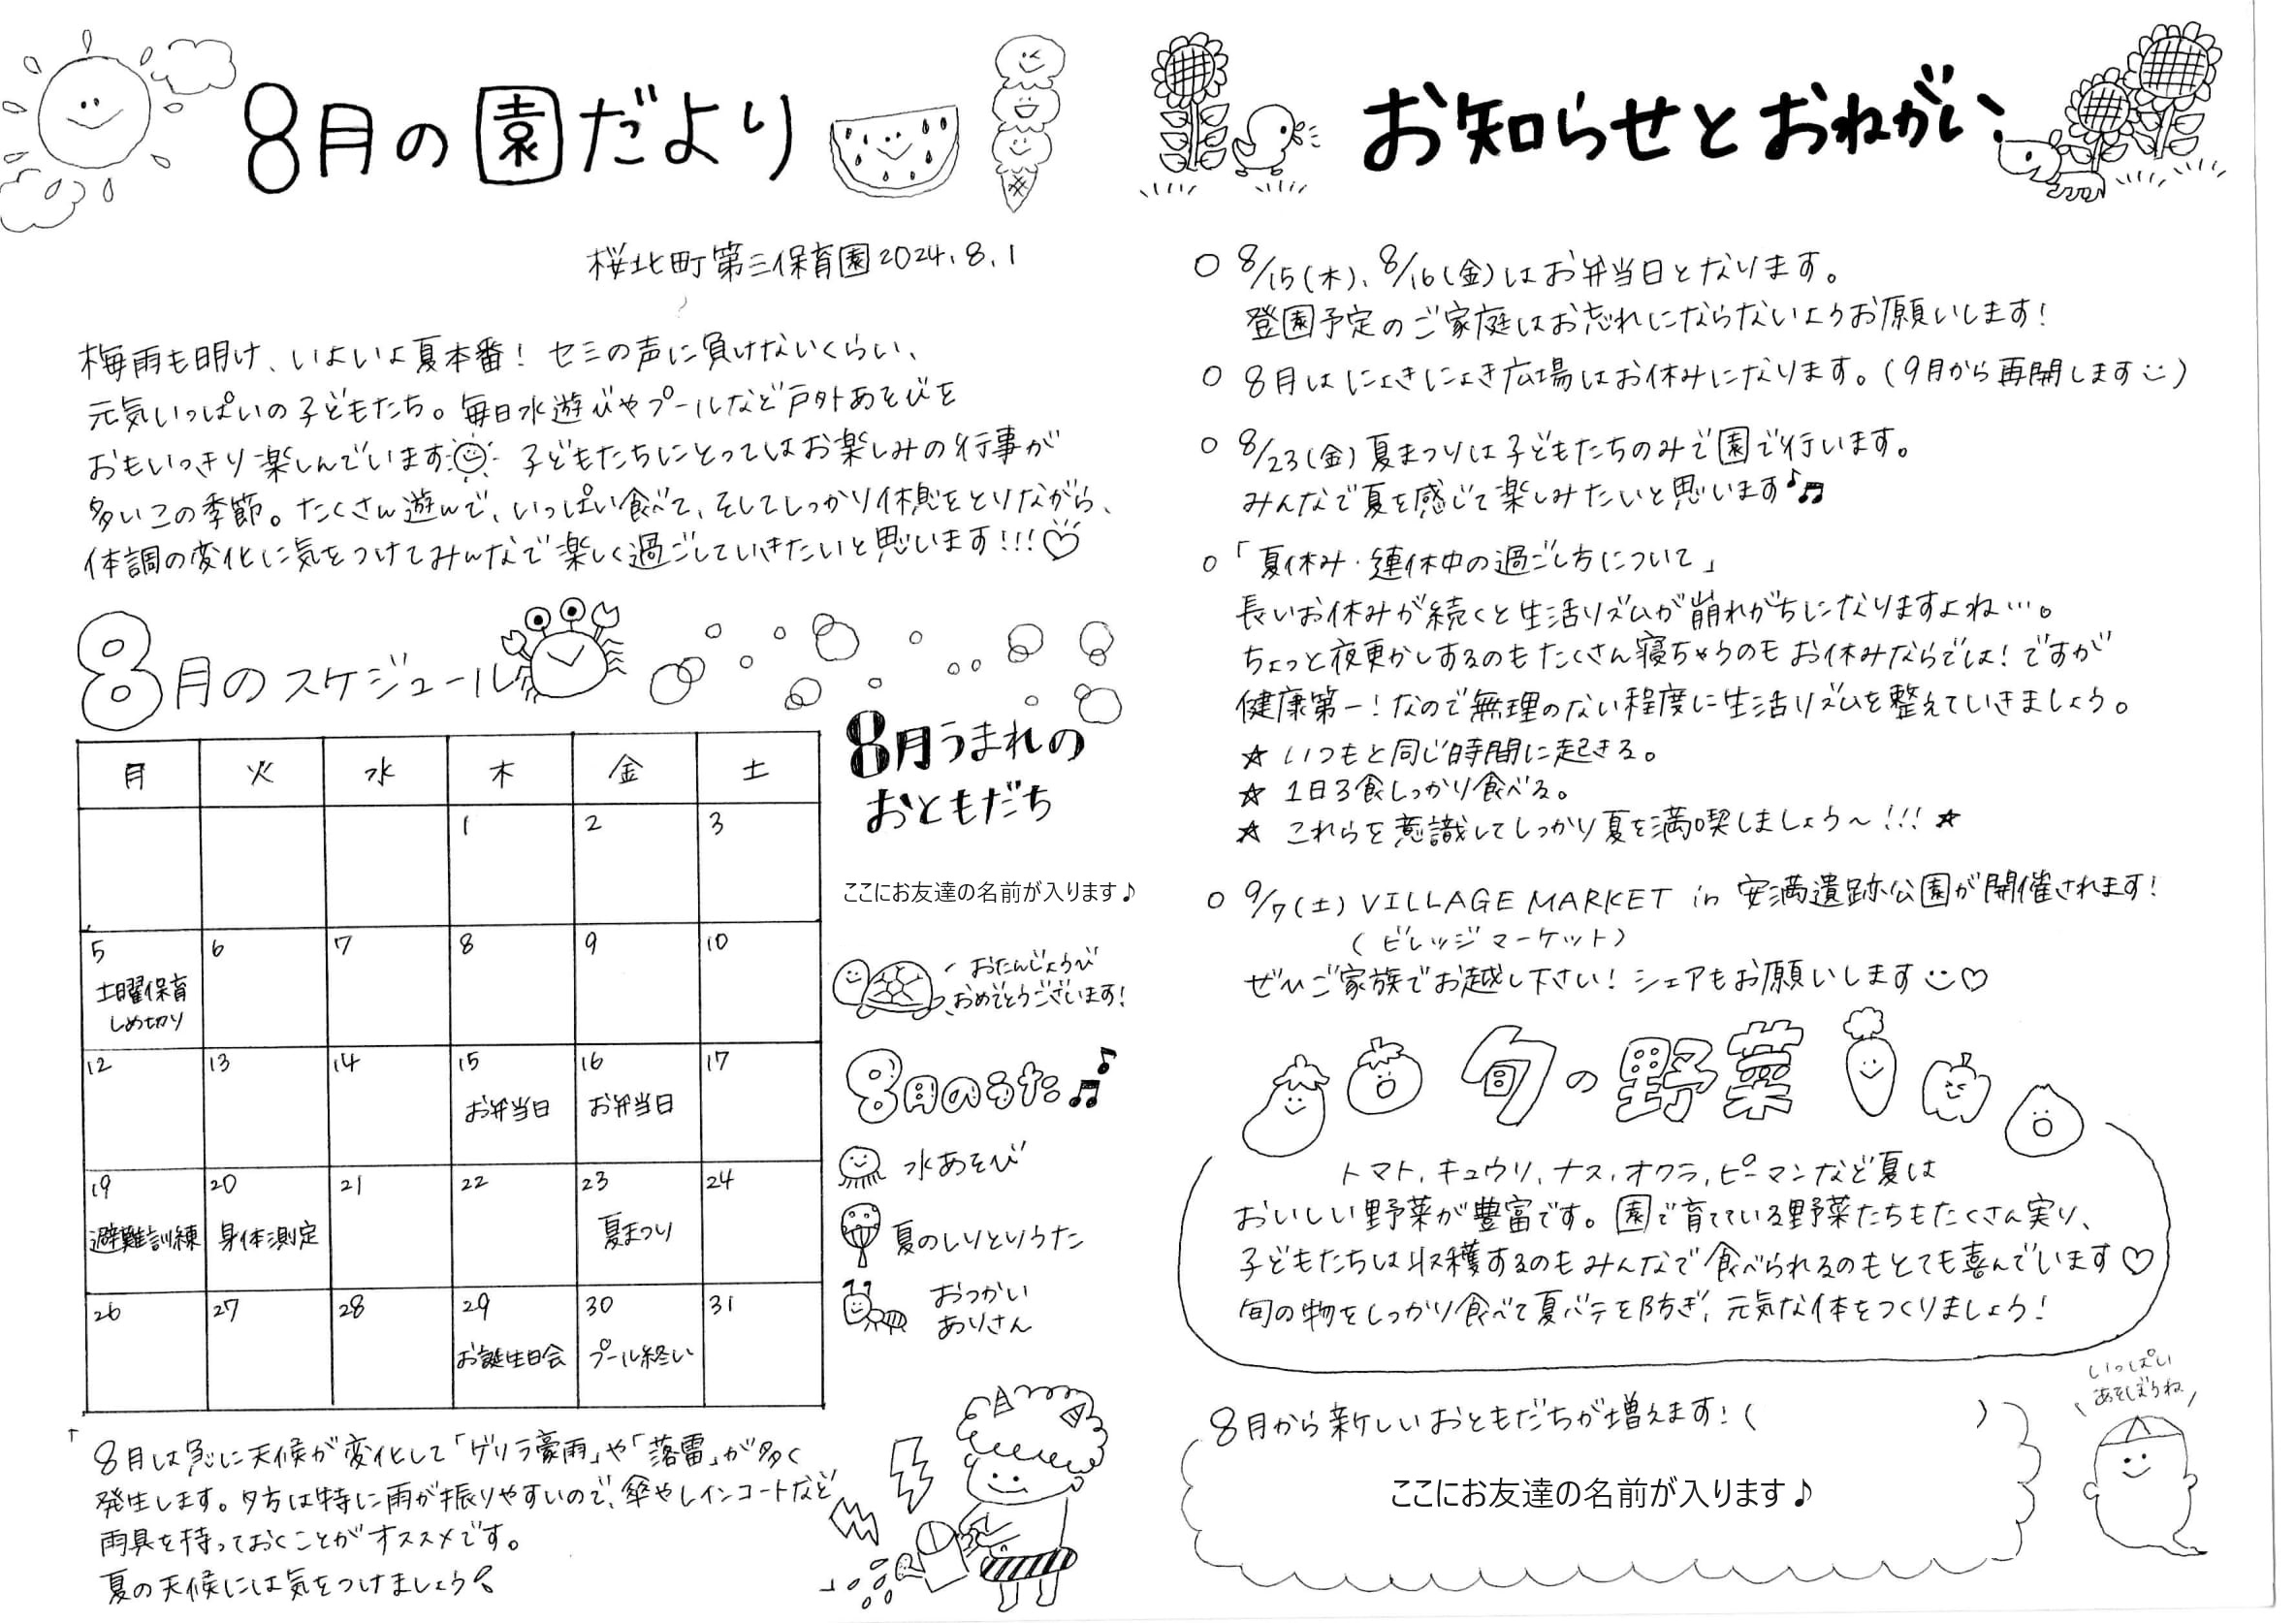 8月の園だより
桜北町第三保育園2024.8.1
梅雨も明け、いよいよ夏本番！セミの声に負けないくらい、
元気いっぱいの子どもたち。毎日水遊びやプールなど戸外あそびを
おもいっきり楽しんでいます 子どもたちにとってはお楽しみの行事が
多いこの季節。たくさん遊んで、いっぱい食べて、そしてしっかり休息をとりながら、
体調の変化に気をつけてみんなで楽しく過ごしていきたいと思います！！！♡
8月のスケジュール
月 火 水 木 金 土
1 2 3
5 6 7 8 9 10
土曜保育
しめ切り
12 13 14 15 16 17
お弁当日 お弁当日
19 20 21 22 23 24
避難訓練 身体測定 夏まつり
26 27 28 29 30 31
お誕生日会 プール終い
8月うまれの
おともだち
ここにお友達の名前が入ります♪
おたんじょうび
おめでとうございます！
8月のうた♪♬
水あそび
夏のしりとりうた
おつかい
ありさん
8月は急に天候が変化して「ゲリラ豪雨」や「落雷」が多く
発生します。夕方は特に雨が振りやすいので、傘やレインコートなど
雨具を持っておくことがオススメです。
夏の天候には気をつけましょう
お知らせとおねがい
○ 8/15(木)、8/16(金)はお弁当日となります。
登園予定のご家庭はお忘れにならないようお願いします！
○ 8月はにょきにょき広場はお休みになります。(9月から再開します)
○ 8/23(金)夏まつりは子どもたちのみで園で行います。
みんなで夏を感じて楽しみたいと思います♪♬
○「夏休み・連休中の過ごし方について」
長いお休みが続くと生活リズムが崩れがちになりますよね…。
ちょっと夜更かしするのもたくさん寝ちゃうのもお休みならでは！ですが
健康第一！なので無理のない程度に生活リズムを整えていきましょう。
☆ いつもと同じ時間に起きる。
☆ 1日3食しっかり食べる。
☆ これらを意識してしっかり夏を満喫しましょう～！！！☆
○ 9/7(土) VILLAGE MARKET in 安満遺跡公園が開催されます！
(ビレッジマーケット)
ぜひご家族でお越し下さい！シェアもお願いします♡
旬の野菜
トマト,キュウリ,ナス,オクラ,ピーマンなど夏は
おいしい野菜が豊富です。園で育てている野菜たちもたくさん実り、
子どもたちは収穫するのもみんなで食べられるのもとても喜んでいます♡
旬の物をしっかり食べて夏バテを防ぎ、元気な体をつくりましょう！
8月から新しいおともだちが増えます！( )
ここにお友達の名前が入ります♪
いっぱい
あそぼうね